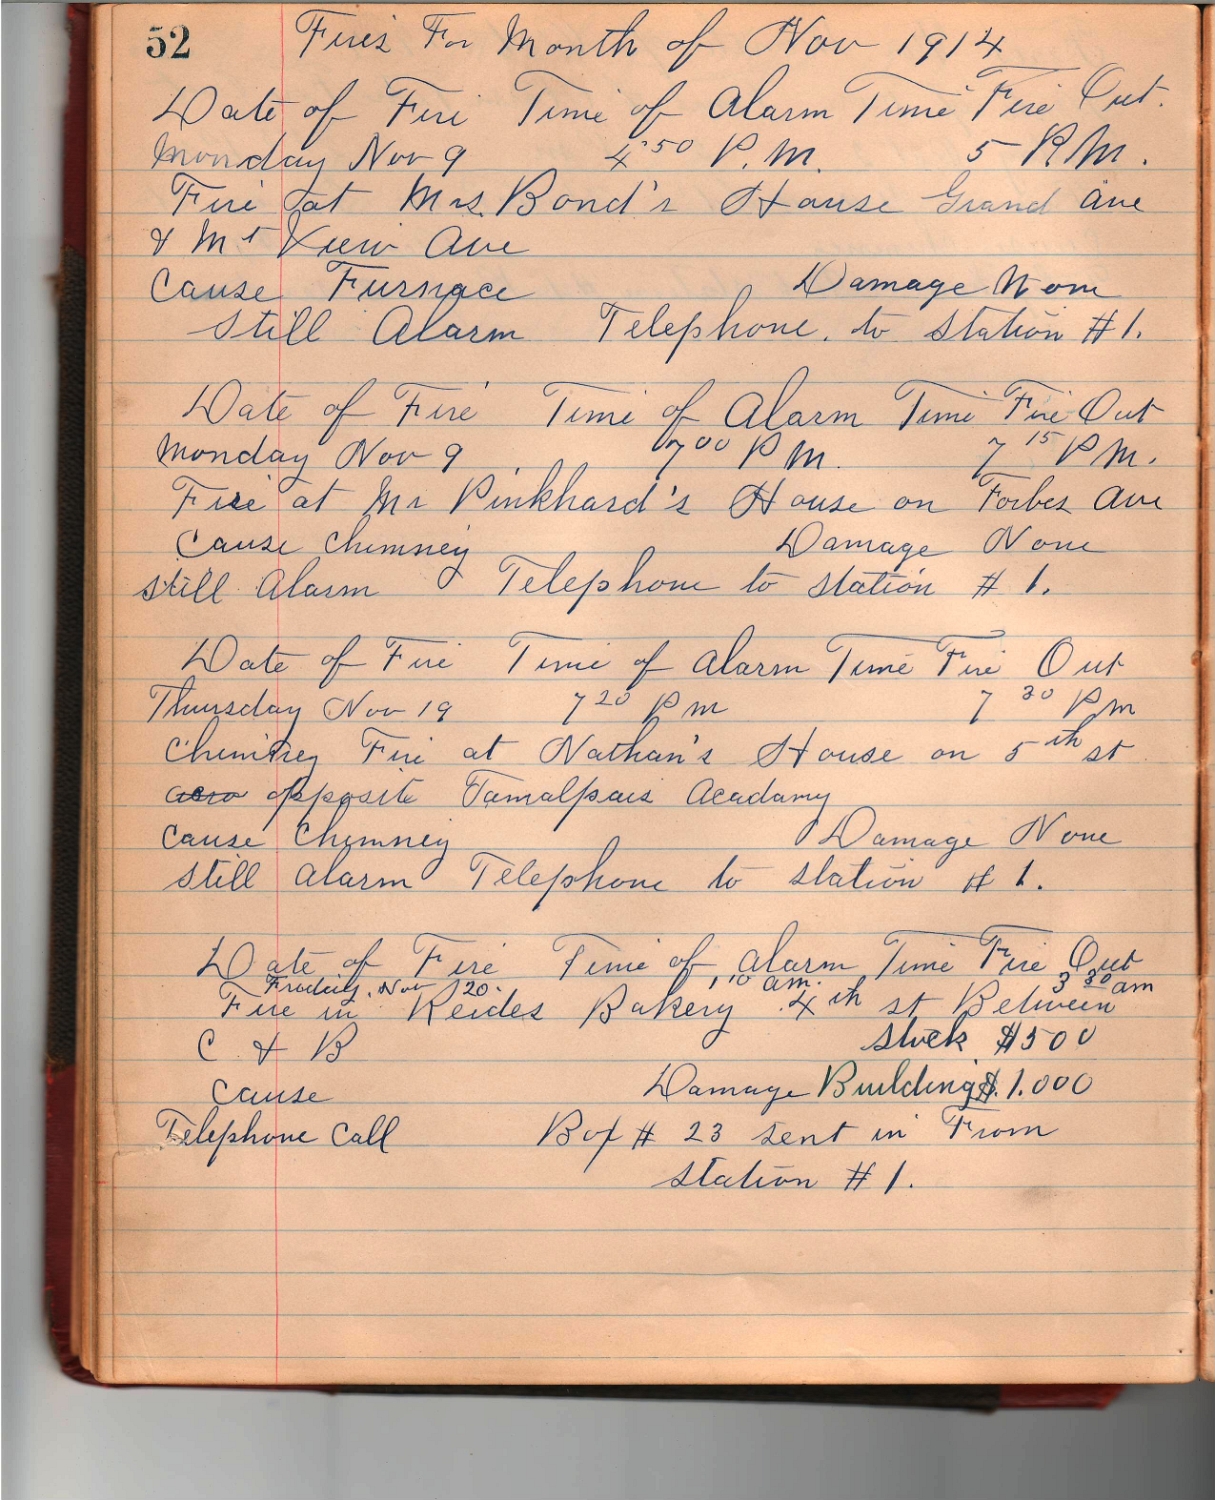 52 Fires For Month of Nov 1914
Date of Fire Time of Alarm Time Fire Out.
Monday Nov 9 4 50 P.M. 5 P.M.
Fire at Mrs. Bond's House Grand Ave
& Mt View Ave
Cause Furnace Damage None
Still Alarm Telephone. to Station #1.
Date of Fire Time of Alarm Time Fire Out
Monday Nov 9 7 00 P M. 7 15 P M.
Fire at Mr Pinkhard's House on Forbes Ave
Cause Chimney Damage None
Still Alarm Telephone to Station # 1.
Date of Fire Time of Alarm Time Fire Out
Thursday Nov 19 7 20 P m 7 30 P m
Chimney Fire at Nathan's House on 5th st
opposite Tamalpais Acadamy
Cause Chimney Damage None
Still Alarm Telephone to Station # 1.
Date of Fire Time of Alarm Time Fire Out
Nov 20. 1 10 am. 3 30 am
Fire in Reides Bakery 4th st Between
C & B Stock $500
Cause Damage Building $1.000
Telephone Call Box # 23 sent in From
Station # 1.